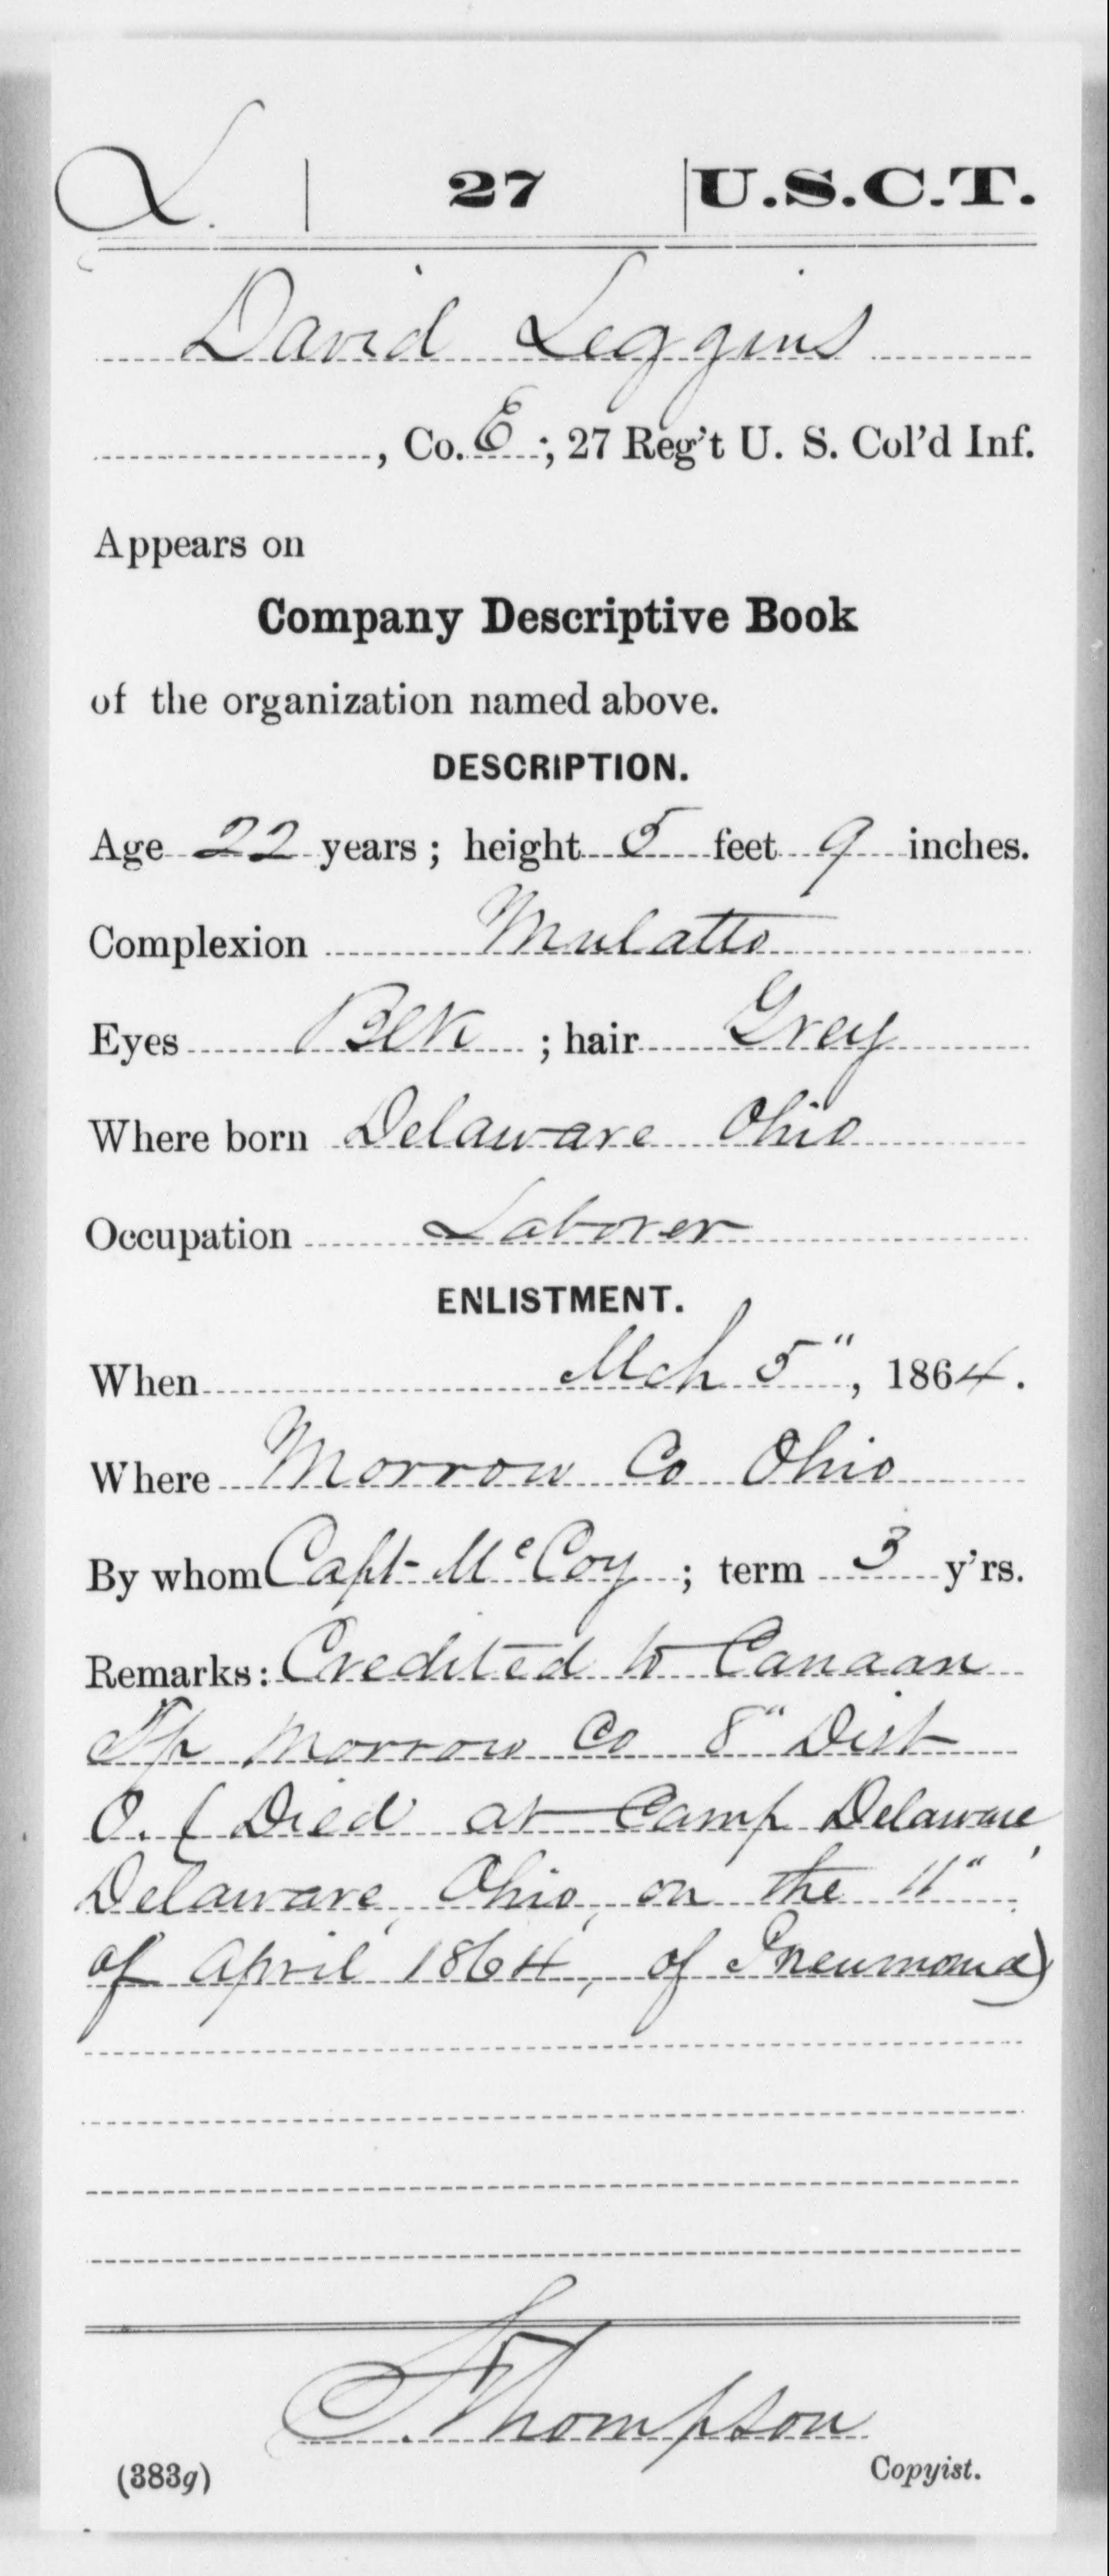 L. | 27 | U.S.C.T.
David Leggins
, Co. E ; 27 Reg't U. S. Col'd Inf.
Appears on
Company Descriptive Book
of the organization named above.
DESCRIPTION.
Age 22 years ; height 5 feet 9 inches.
Complexion Mulatto
Eyes Blk ; hair Grey
Where born Delaware Ohio
Occupation Laborer
ENLISTMENT.
When Mch 5", 1864.
Where Morrow Co Ohio
By whom Capt McCoy ; term 3 y'rs.
Remarks: Credited to Canaan
Tp Morrow Co 8" Dist
O. (Died at Camp Delaware,
Delaware, Ohio, on the 11"
of April 1864, of Pneumonia)
Thompson
(383g) Copyist.